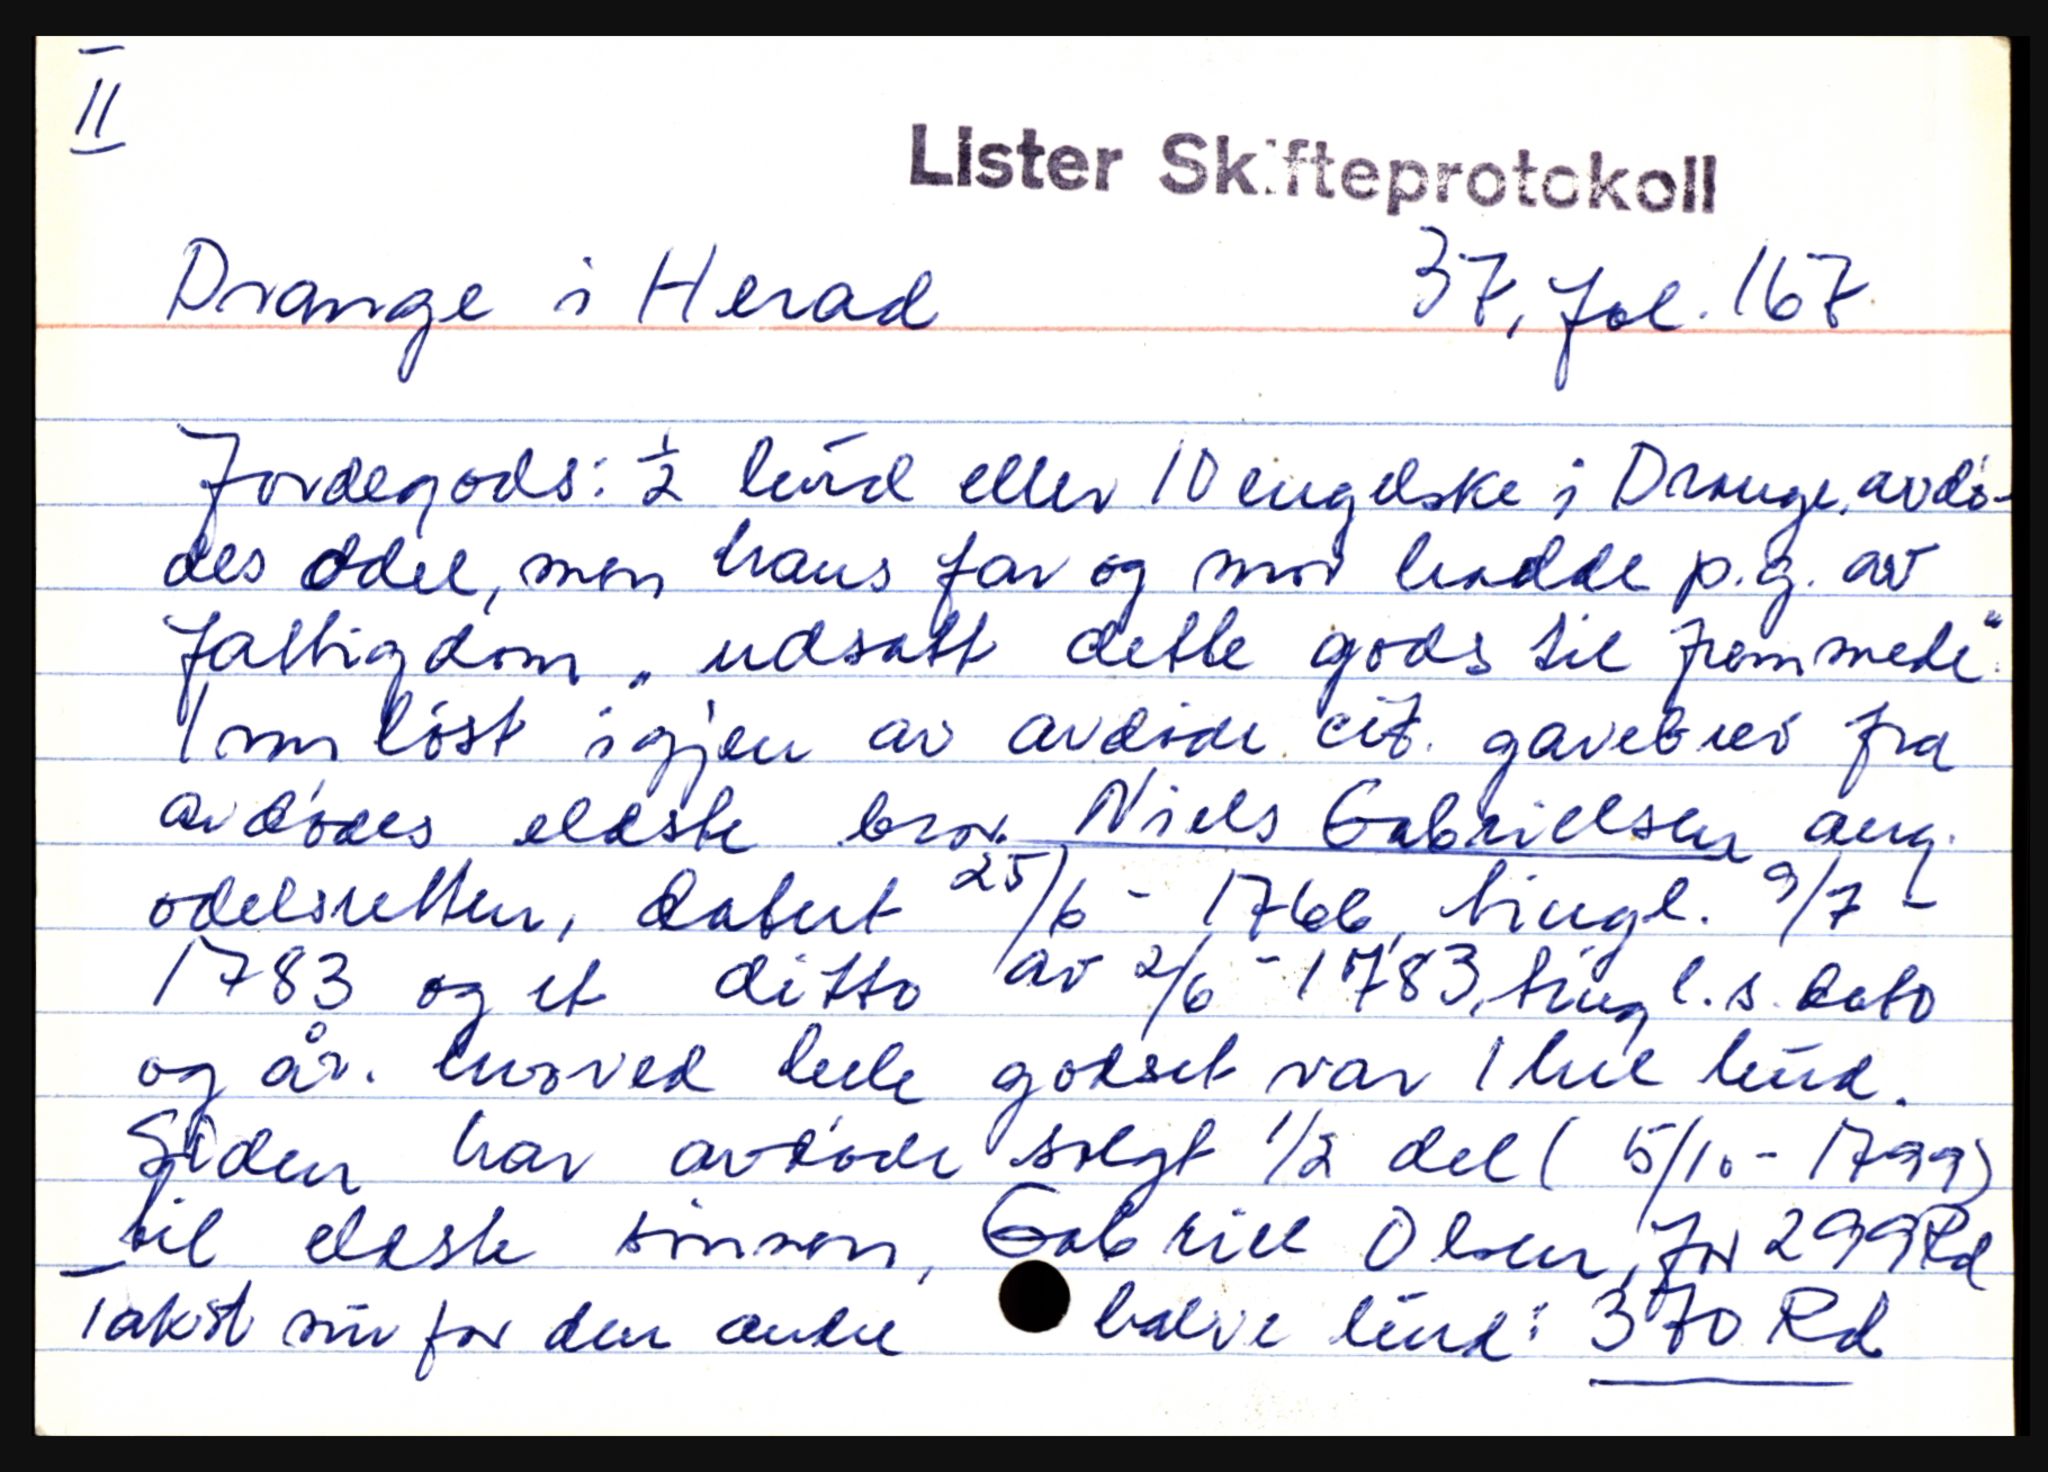 II
Lister Skifteprotokoll
Drange i Herad 37, fol. 167
Jordegods: ½ hud eller 10 engelske i Drange, avdø-
des odel, men hans far og mor hadde p.g. av
fattigdom „udsatt dette gods til fremmede“.
Innløst igjen av avdøde cif. gavebrev fra
avdødes eldste bror Niels Gabrielsen ang.
odelsretten, datert 25/6 - 1766, tingl. 9/7 -
1783 og et ditto av 2/6 - 1783, tingl. s. dato
og år. hvorved hele godset var 1 hel hud.
Siden har avdøde solgt 1/2 del (5/10 - 1799)
til eldste sønnen, Gabriel Olsen, for 299 Rd
Takst nu for den andre halve hud: 370 Rd